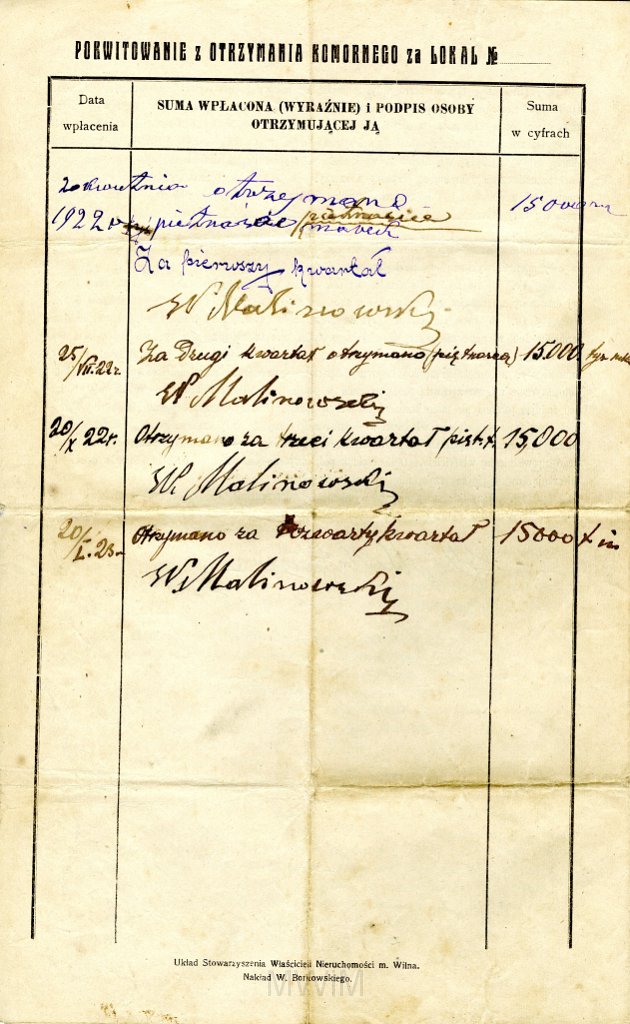 POKWITOWANIE z OTRZYMANIA KOMORNEGO za LOKAL №
Data wpłacenia
SUMA WPŁACONA (WYRAŹNIE) i PODPIS OSOBY OTRZYMUJĄCEJ JĄ
Suma w cyfrach
20 kwietnia otrzymano 15000
1922 r piętnaście marek
Za pierwszy kwartał
W Malinowski
25/VII.22r. Za Drugi kwartał otrzymano 15.000
W Malinowski
20/X 22r. Otrzymano za trzeci kwartał 15,000
W. Malinowski
20/I.23 Otrzymano za czwarty kwartał 15000
W. Malinowski
Układ Stowarzyszenia Właścicieli Nieruchomości m. Wilna.
Nakład W. Borkowskiego.
MWiM